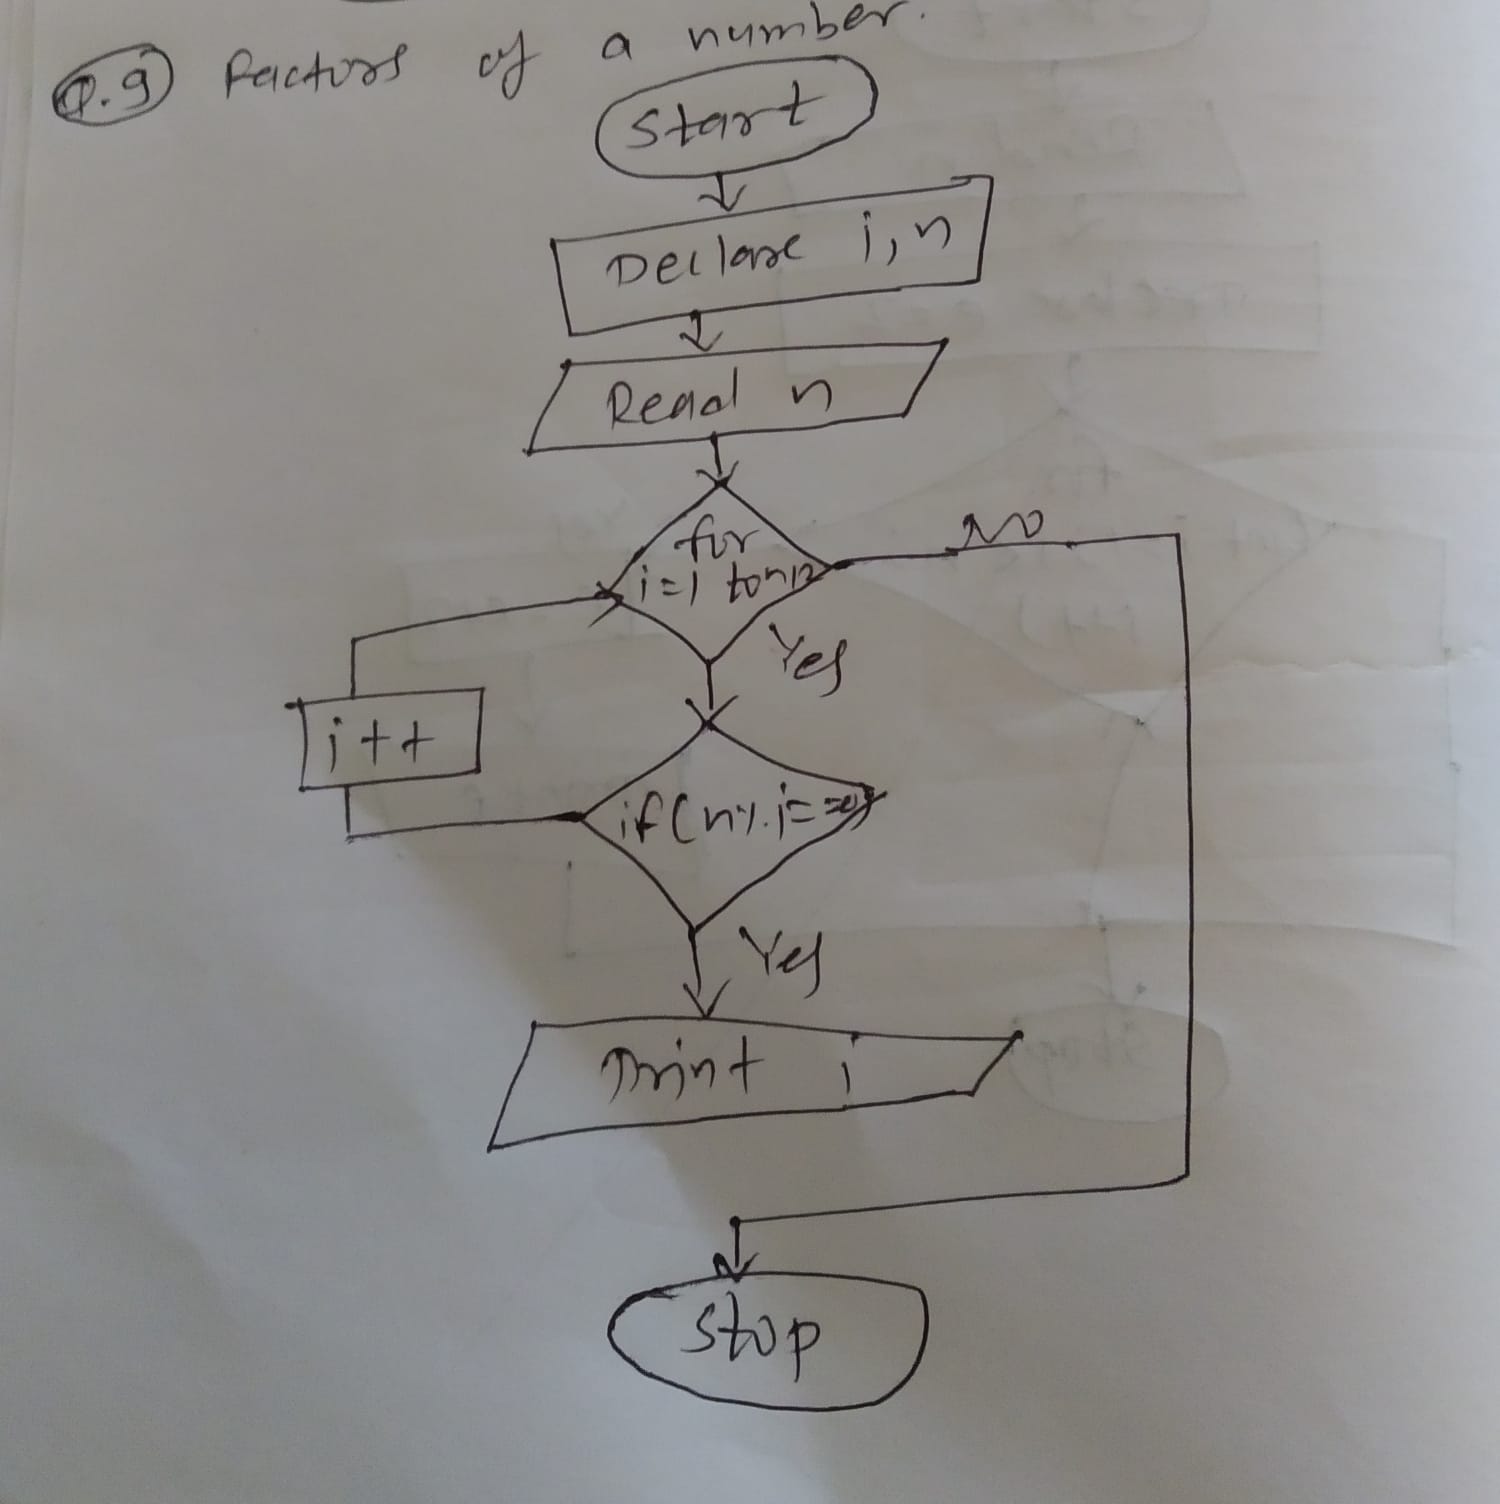 Q.9 Factors of a number.
Start
Declare i, n
Read n
for
i=1 to n/2
No
Yes
i++
if(n%i==0)
Yes
Print i
Stop